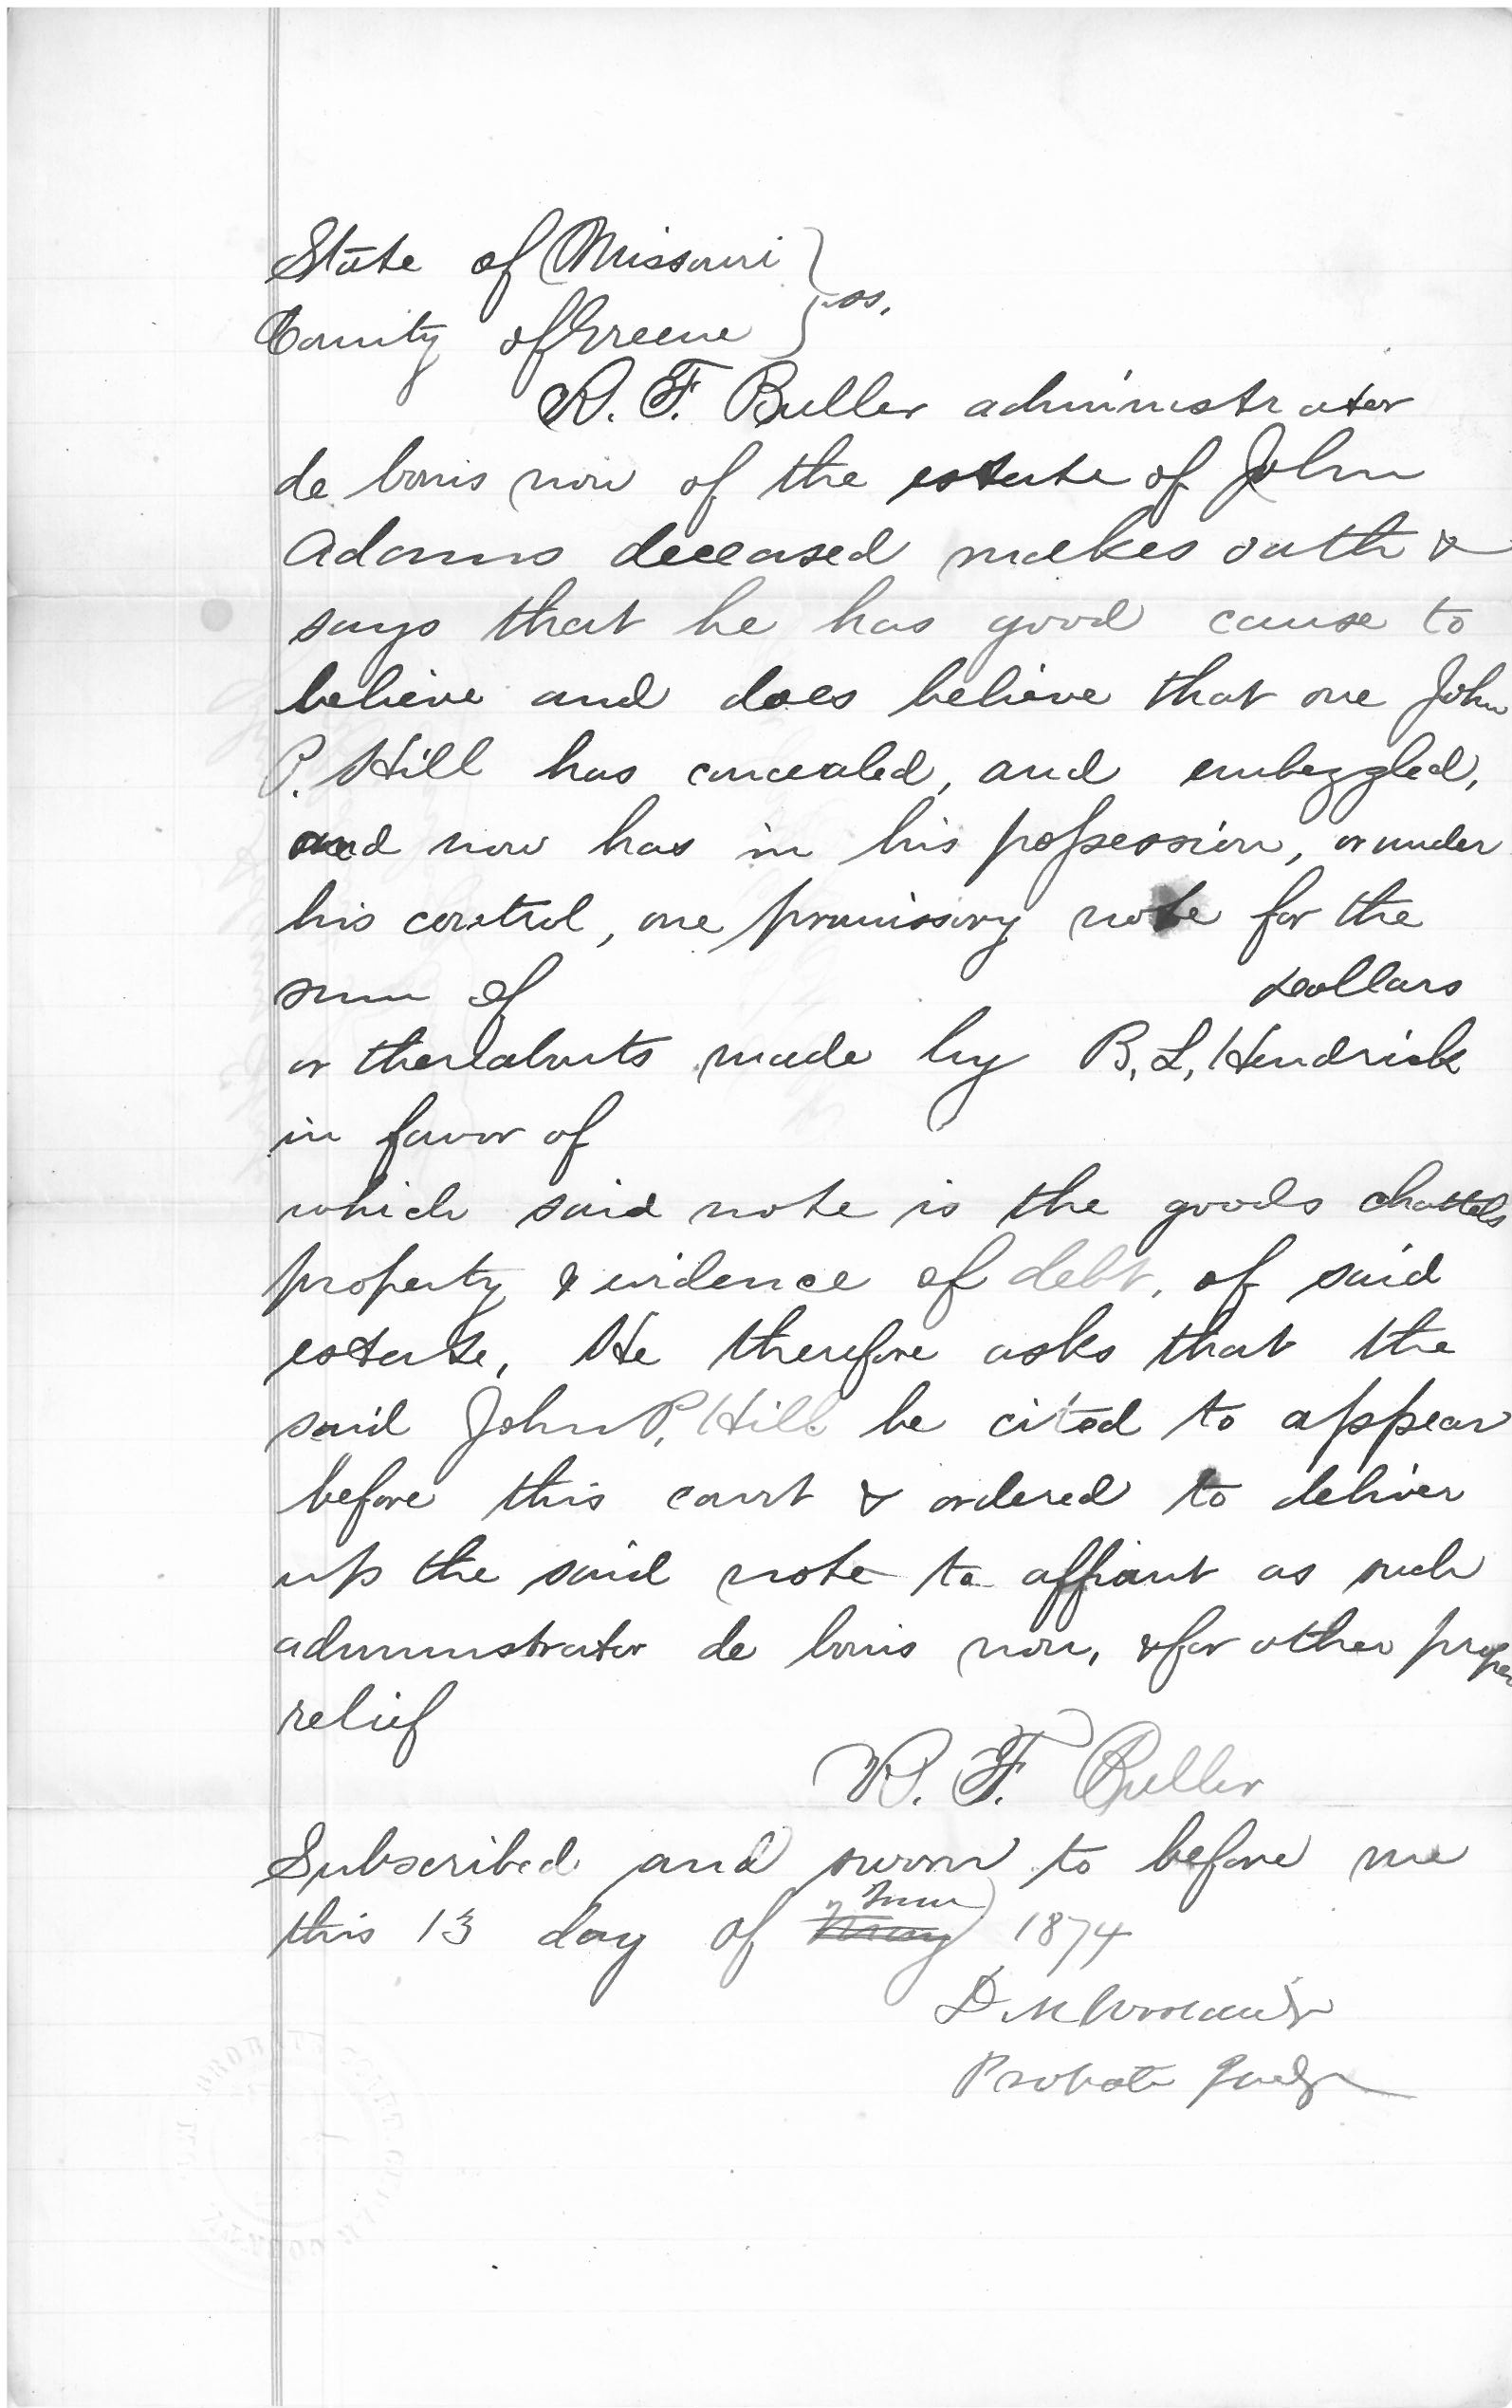 State of Missouri }
County of Greene } ss.
R. F. Buller administrator
de bonis non of the estate of John
Adams deceased makes oath &
says that he has good cause to
believe and does believe that one John
P. Hill has concealed, and embezzled,
and now has in his possession, or under
his control, one promissory note for the
sum of Dollars
or thereabouts made by B. L. Hendrick
in favor of
which said note is the goods chattels
property & evidence of debt, of said
estate, He therefore asks that the
said John P. Hill be cited to appear
before this court & ordered to deliver
up the said note to affiant as such
administrator de bonis non, & for other proper
relief
R. F. Buller
Subscribed and sworn to before me
this 13 day of May June 1874
Probate Judge